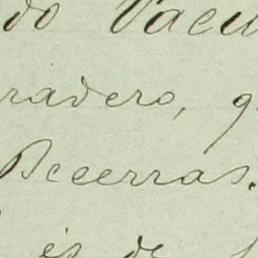 do Vacu
radero, q
Becerras.
és de